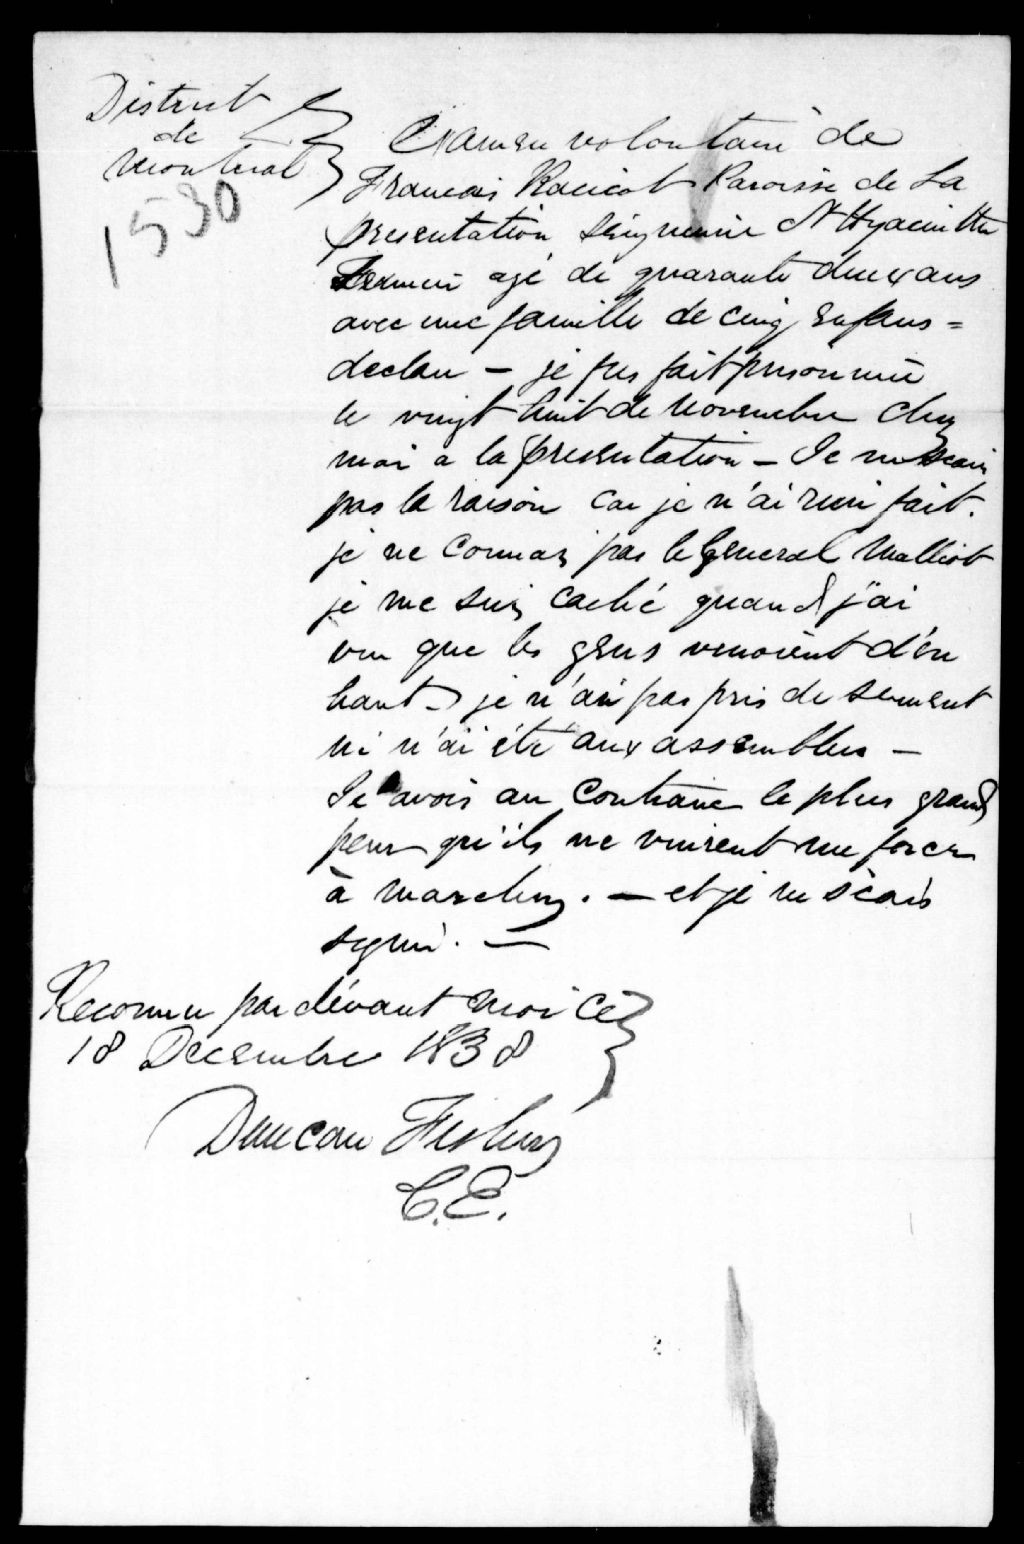 District
de
Montreal
1530
Examen volontaire de
Francois Racicot Paroisse de La
presentation Seigneurie St Hyacinthe
agé de quarante deux ans
avec une famille de cinq enfans =
declare – je fus fait prisonnier
le vingt huit de Novembre chez
moi a la presentation – Je ne scais
pas la raison car je n'ai rien fait.
je ne connais pas le General Malliot
je me suis caché quand j'ai
vu que les gens venoient d'en
haut – je n'ai pas pris de serment
ni n'ai été aux assemblees –
Je avois au Contraire le plus grand
peur qu'ils ne vinrent me forcer
à marcher. – et je ne scais
signer. –
Reconnu par dévant moi ce
18 Decembre 1838
Duncan Fisher
C.E.